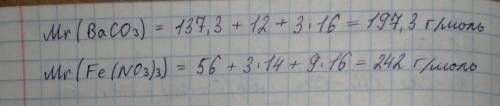 Mr(BaCO₃) = 137,3 + 12 + 3·16 = 197,3 г/моль
Mr(Fe(NO₃)₃) = 56 + 3·14 + 9·16 = 242 г/моль